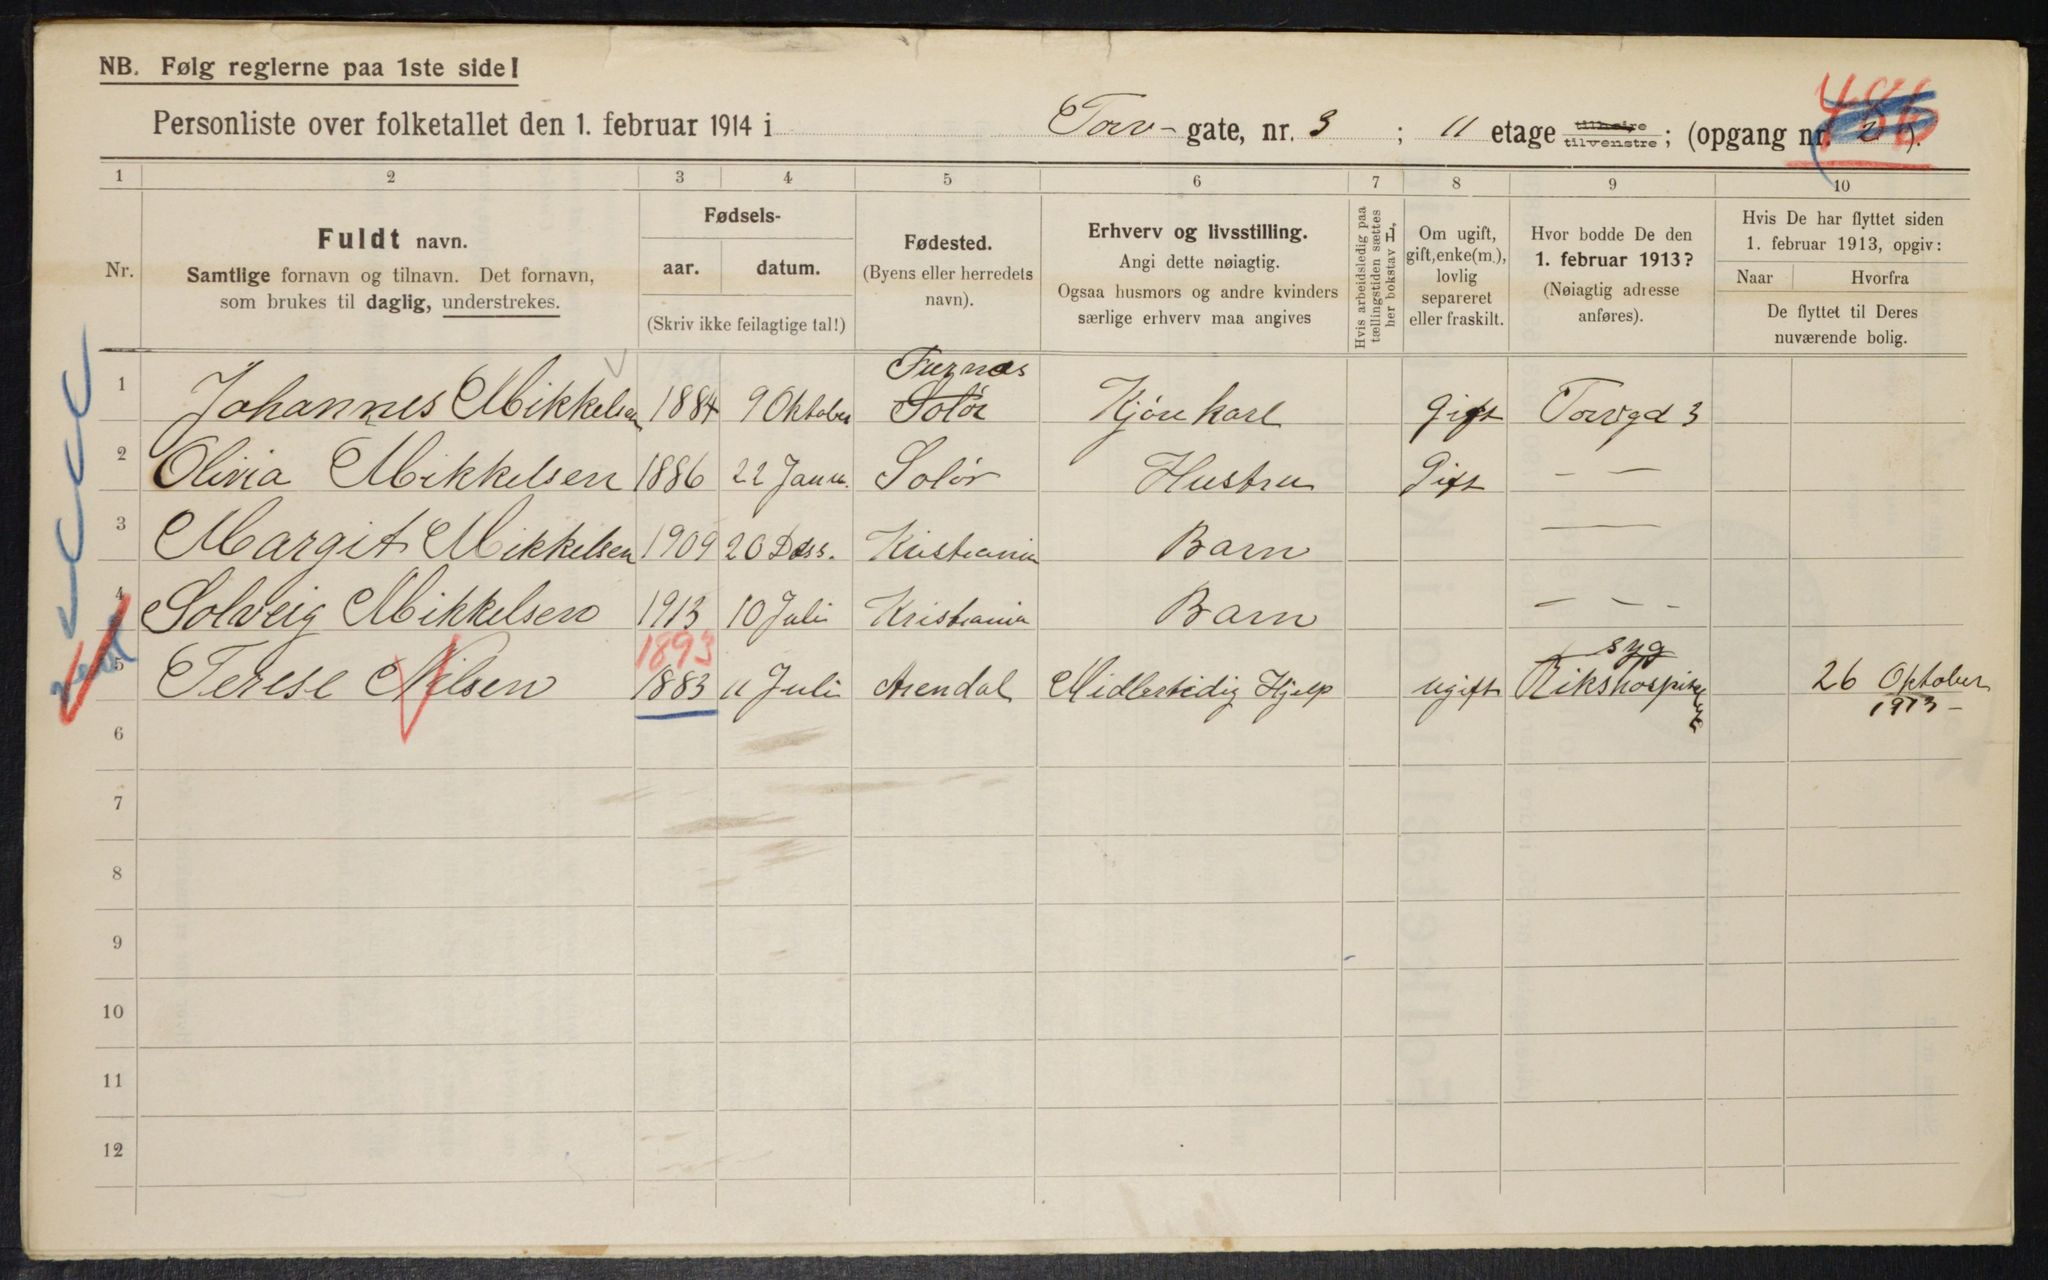 NB. Følg reglerne paa 1ste side!
Personliste over folketallet den 1. februar 1914 i Torv- gate, nr. 3 ; 11 etage tilhøire tilvenstre; (opgang nr. ).
1 2 3 4 5 6 7 8 9 10
Nr.
Fuldt navn.
Samtlige fornavn og tilnavn. Det fornavn,
som brukes til daglig, understrekes.
Fødsels-
aar. datum.
(Skriv ikke feilagtige tal!)
Fødested.
(Byens eller herredets
navn).
Erhverv og livsstilling.
Angi dette nøiagtig.
Ogsaa husmors og andre kvinders
særlige erhverv maa angives
Hvis arbeidsledig paa
tællingstiden sættes
her bokstav L.
Om ugift,
gift, enke(m.),
lovlig
separeret
eller fraskilt.
Hvor bodde De den
1. februar 1913?
(Nøiagtig adresse
anføres).
Hvis De har flyttet siden
1. februar 1913, opgiv:
Naar Hvorfra
De flyttet til Deres
nuværende bolig.
1 Johannes Mikkelsen 1884 9 Oktober Furnæs Solør Kjørekarl Gift Torvgd 3
2 Olivia Mikkelsen 1886 22 Janu. Solør Hustru Gift — —
3 Margit Mikkelsen 1909 20 Dess. Kristiania Barn —
4 Solveig Mikkelsen 1913 10 Juli Kristiania Barn — — -
1893
5 Terese Nilsen 1883 11 Juli Arendal Midlertidig Hjelp ugift syg Rikshospitalet 26 Oktober
1913 -
6
7
8
9
10
11
12